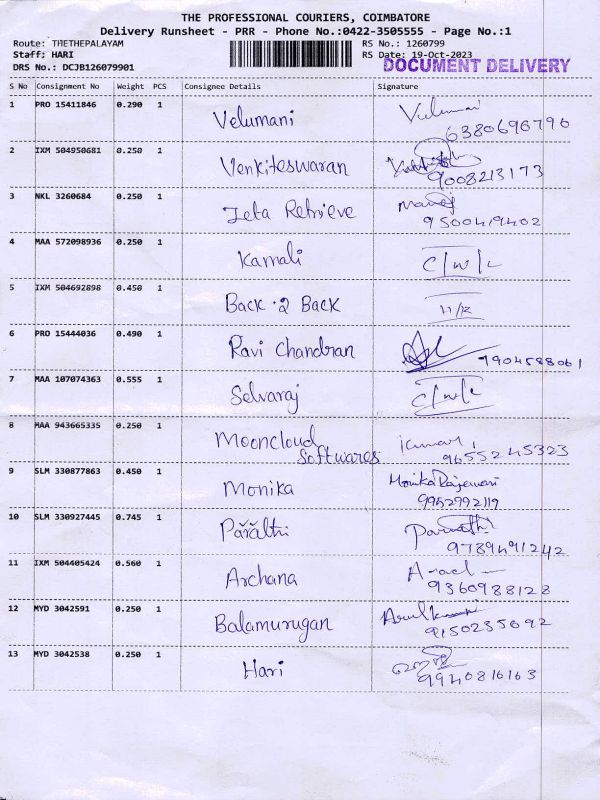 THE PROFESSIONAL COURIERS, COIMBATORE
Delivery Runsheet - PRR - Phone No.:0422-3505555 - Page No.:1
Route: THETHEPALAYAM RS No.: 1260799
Staff: HARI RS Date: 19-Oct-2023
DRS No.: DCJB126079901 DOCUMENT DELIVERY
S No Consignment No Weight PCS Consignee Details Signature
1 PRO 15411846 0.290 1 Velumani
6380696796
2 IXM 504950681 0.250 1 Venkiteswaran
9008213173
3 NKL 3260684 0.250 1 Zeta Retrieve Manoj
9500419402
4 MAA 572098936 0.250 1 Kamali C/w/c
5 IXM 504692898 0.450 1 Back 2 Back
6 PRO 15444036 0.490 1 Ravi Chandran 7904588061
7 MAA 107074363 0.555 1 Selvaraj C/w/c
8 MAA 943665335 0.250 1 Mooncloud
Softwares 9655245323
9 SLM 330877863 0.450 1 Monika Monika Rajeswari
9952992119
10 SLM 330927445 0.745 1 Parvathi
9789491242
11 IXM 504405424 0.560 1 Archana
9360988128
12 MYD 3042591 0.250 1 Balamurugan
9150235692
13 MYD 3042538 0.250 1 Hari
9940816163